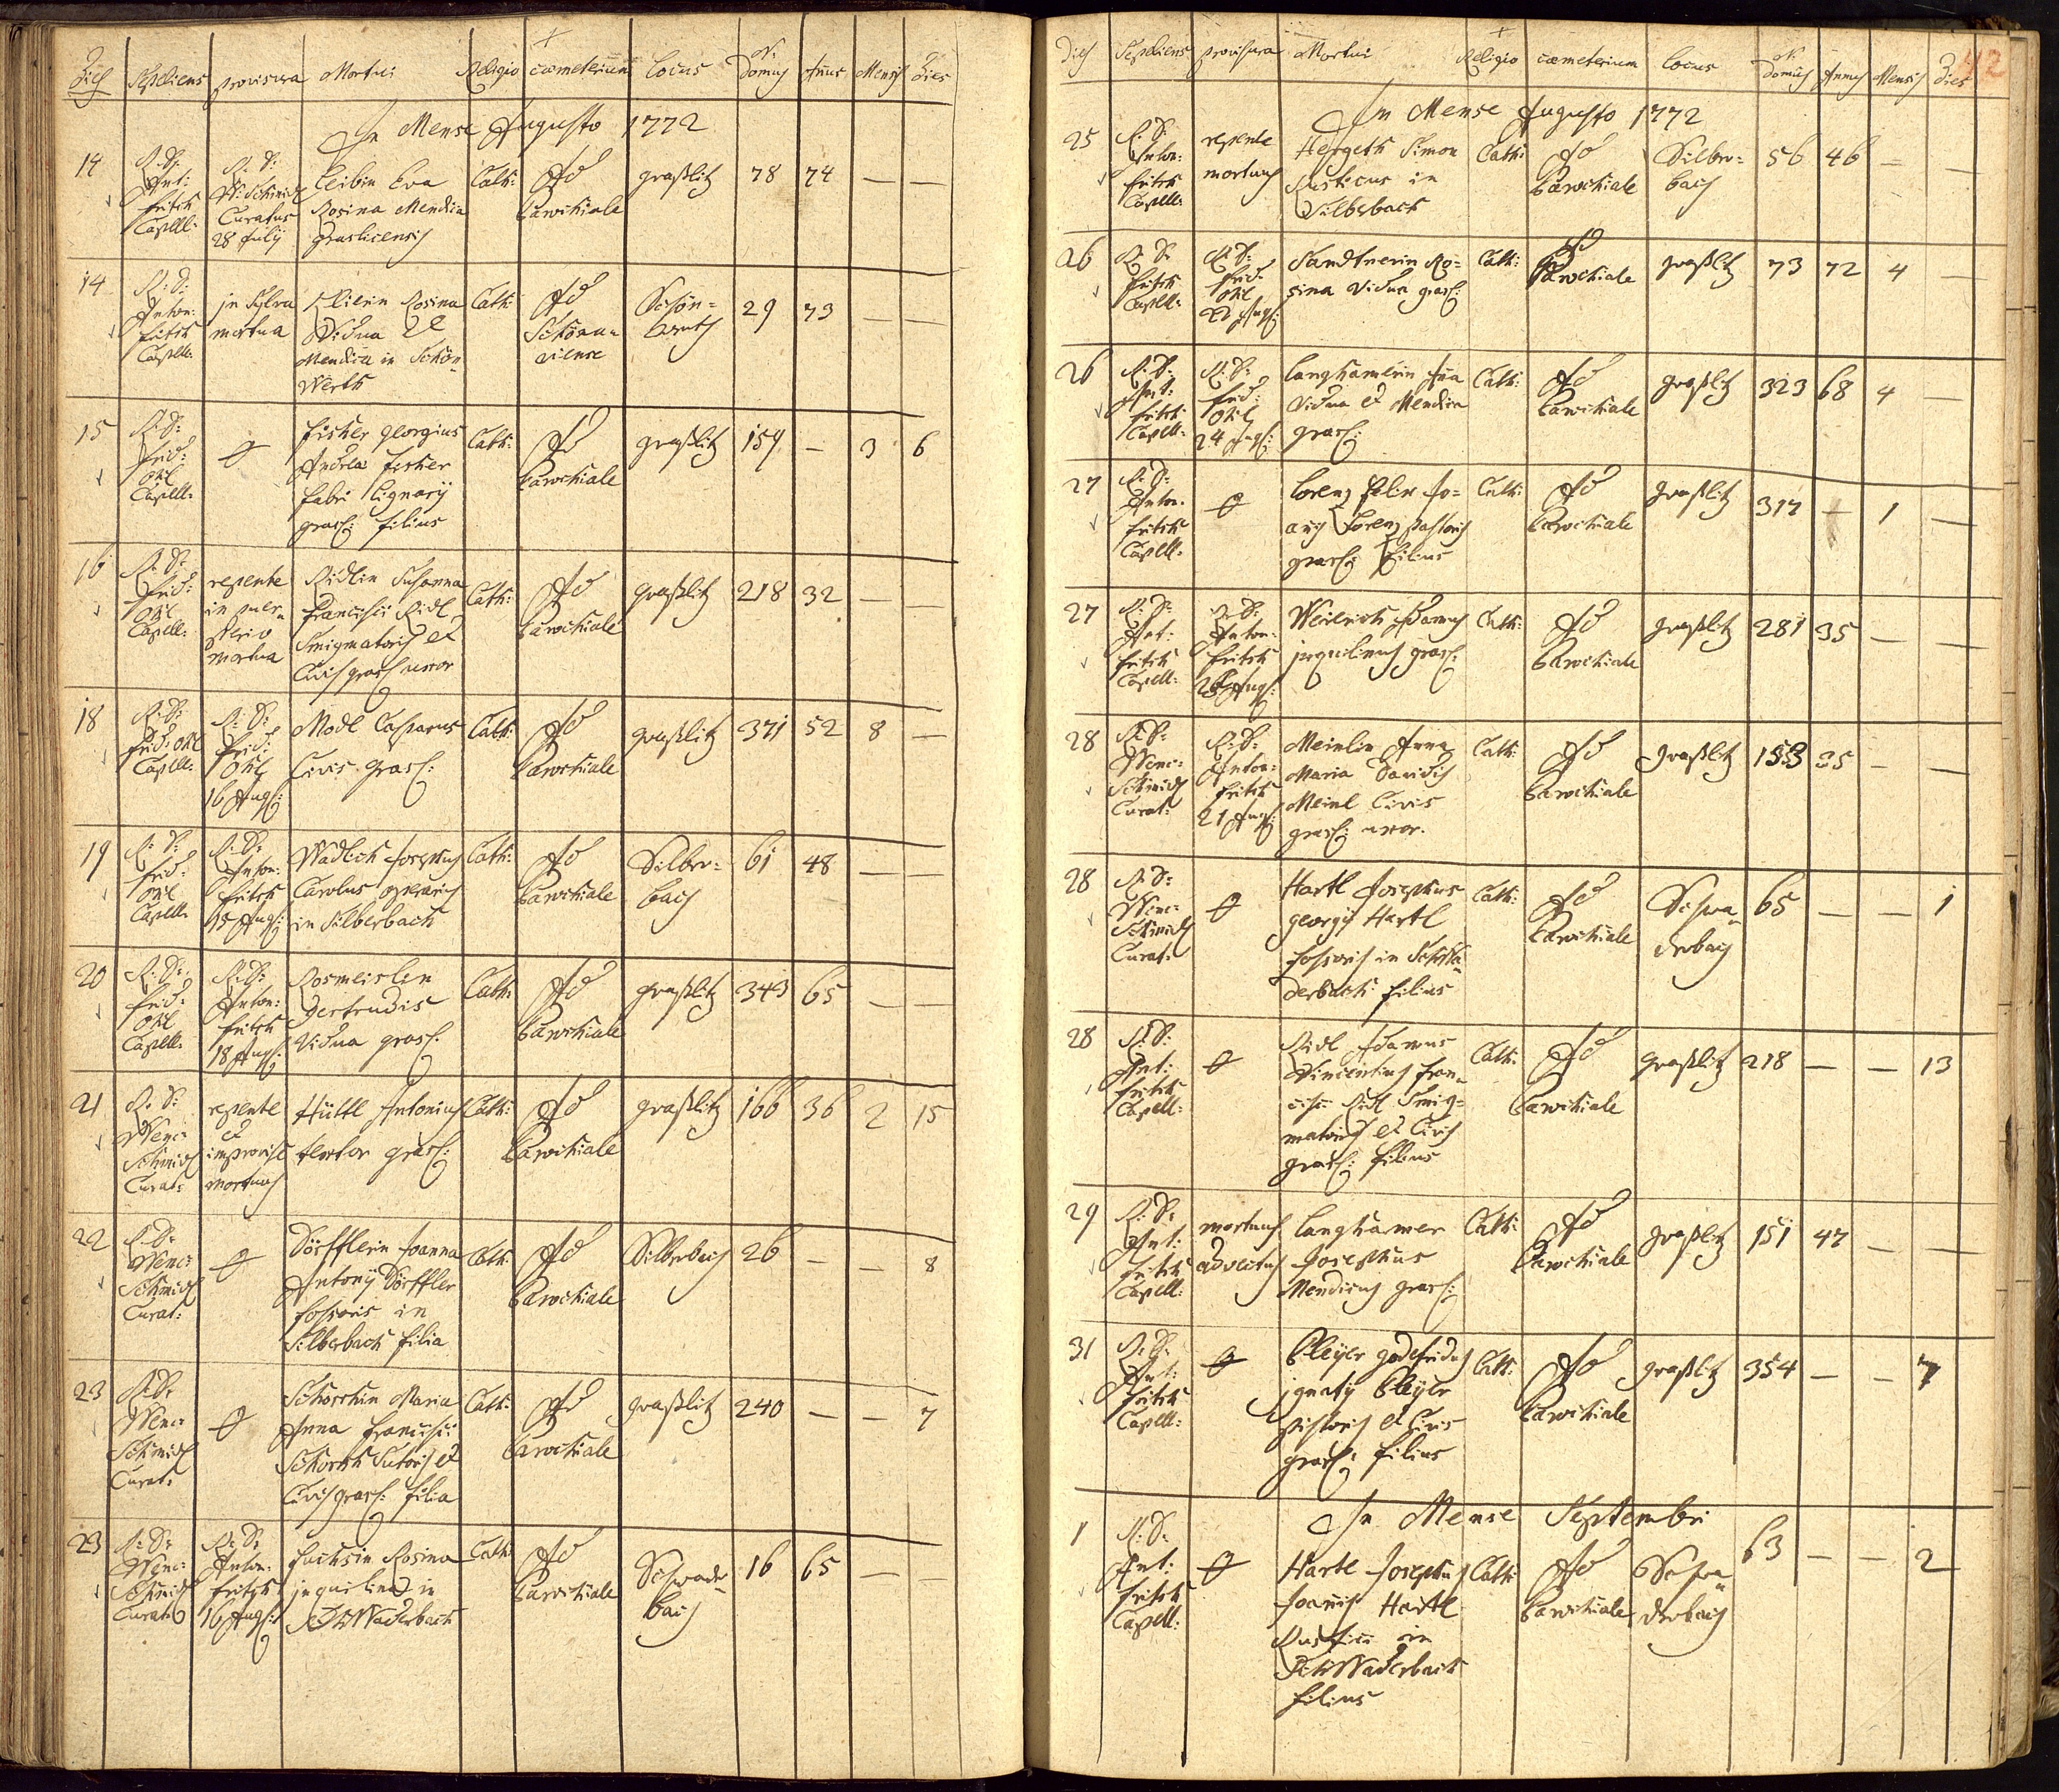 Dies Sepeliens provisura Mortui Religio cœmeterium Locus N: Domus Annus Mensis Dies
In Mense Augusto 1772
14 R: D: Ant: Fritsch Capell: R: D: W: Schmid Curatus 28 July Leibin Eva Rosina Mendica Graslicensis Cath: Ad Parochiale graßlitz 78 74 — —
14 R: D: Anton: Fritsch Capell: in sylva mortua Rosina Vidua et Mendica in Schön-werth Cath: Ad Schönau-viense Schön-werth 29 73 — —
15 R: D: Frid: Ohl Capell: Fischer Georgius Andreæ Fischer fabri lignarij grasl: filius Cath: Ad Parochiale graßlitz 159 — 3 6
16 R: D: Frid: Ohl Capell: repente in puerperio mortua Ridlin Susanna Francisci Ridl Smigmatoris et Civis grasl uxor Cath: Ad Parochiale graßlitz 218 32 — —
18 R: D: Frid: Ohl Capell: R: D: Frid: Ohl 16 Aug: Modl Casparus Civis grasl: Cath: Ad Parochiale graßlitz 371 52 8 —
19 R: D: Frid: Ohl Capell: R: D: Anton: Fritsch 15 Aug: Wadlich Josephus Carolus operarius in Silberbach Cath: Ad Parochiale Silber-bach 61 48 — —
20 R: D: Frid: Ohl Capell: R: D: Anton: Fritsch 18 Aug: Rosmeislin Gertrudis Vidua grasl: Cath: Ad Parochiale graßlitz 343 65 — —
21 R: D: Wenc: Schmid Curat: repente et improvise mortuus Hüttl Antonius textor grasl: Cath: Ad Parochiale graßlitz 166 36 2 15
22 R: D: Wenc: Schmid Curat: Dörfflerin Joanna Antonij Dörffler fossoris in Silberbach filia Cath: Ad Parochiale Silberbach 26 — — 8
23 R: D: Wenc: Schmid Curat: Schorschin Maria Anna Francisci Schorsch Sutoris et Civis grasl: filia Cath: Ad Parochiale graßlitz 240 — — 7
23 R: D: Wenc: Schmid Curat: R: D: Anton: Fritsch 16 Aug: Fuchsin Rosina inquilina in Schwaderbach Cath: Ad Parochiale Schwader-bach 16 65 — —
42
Dies Sepeliens provisura Mortui Religio cœmeterium Locus N: Domus Annus Mensis Dies
In Mense Augusto 1772
25 R: D: Anton: Fritsch Capell: repente mortuus Hergeth Simon Rusticus in Silberbach Cath: Ad Parochiale Silber-bach 56 46 — —
26 R: D: Fritsch Capell: R: D: Frid: Ohl Aug: Sandtnerin Ro-sina Vidua grasl: Cath: Ad Parochiale graßlitz 73 72 4 —
26 R: D: Ant: Fritsch Capell: R: D: Frid: Ohl 24 Aug: Langhamerin Ana Vidua et Mendica grasl: Cath: Ad Parochiale graßlitz 323 68 4 —
27 R: D: Anton: Fritsch Capell: Lorenz Felix Jo-anis Lorenz pastoris grasl: filius Cath: Ad Parochiale graßlitz 317 — 1 —
27 R: D: Ant: Fritsch Capell: R: D: Anton: Fritsch Aug: Adamus inquilinus grasl: Cath: Ad Parochiale graßlitz 281 35 — —
28 R: D: Wenc: Schmid Curat: R: D: Anton: Fritsch 21 Aug: Meinlin Anna Maria Davidis Meinl Civis grasl: uxor. Cath: Ad Parochiale graßlitz 153 35 — —
28 R: D: Wenc: Schmid Curat: Hartl Josephus georgij Hartl fossoris in Schwa-derbach filius Cath: Ad Parochiale Schwa-derbach 65 — — 1
28 R: D: Ant: Fritsch Capell: Ridl Adamus Vincentius Fran-cisci Ridl Smig-matoris et Civis grasl: filius Cath: Ad Parochiale graßlitz 218 — — 13
29 R: D: Ant: Fritsch Capell: mortuus advectus Langhamer Josephus Mendicus grasl: Cath: Ad Parochiale graßlitz 151 47 — —
31 R: D: Ant: Fritsch Capell: Pleyer Godefridus Ignatij Pleyer pistoris et Civis grasl: filius Cath: Ad Parochiale graßlitz 354 — — 7
In Mense Septembri
1 R: D: Ant: Fritsch Capell: Hartl Josephus Joannis Hartl Rustici in Schwaderbach filius Cath: Ad Parochiale Schwa-derbach 63 — — 2